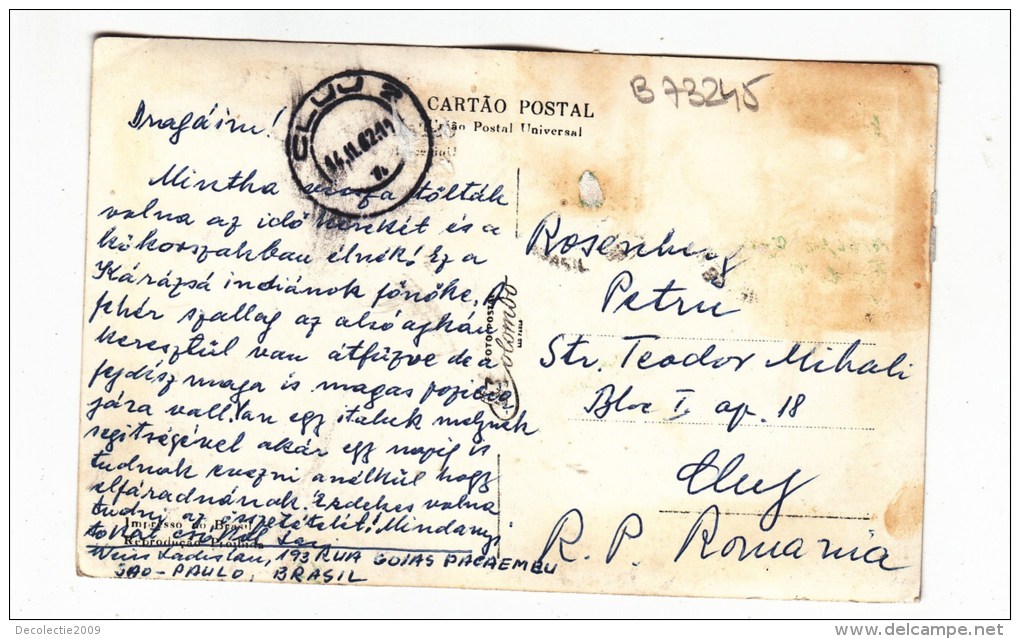 B 73245
CARTÃO POSTAL
União Postal Universal
CLUJ 2
14.11.62.19
Dragáim!
Mintha vissza tólták
volna az idő kerekét és a
kőkorszakban élnék! Ez a
Kárázsá indiánok főnöke, A
fehér szallag az alsóajkán
keresztül van átfűzve de a
fejdísz maga is magas pozició
jára vall. Van egy italuk melynek
segítségével akár egy napig is
tudnak evezni anélkül hogy
elfáradnának. Érdekes volna
tudni az összetételit! Mindanyi
tokat csókol
Weiss Ladislau, 193 RUA GOIAS PACAEMBU
SAO-PAULO, BRASIL
Impresso no Brasil
Reprodução Proibida
FOTOPOSTAL
Colombo
BRASIL
Rosenberg
Petru
Str. Teodor Mihali
Bloc I, ap. 18
Cluj
R. P. Romania
Decolectie2009
www.delcampe.net